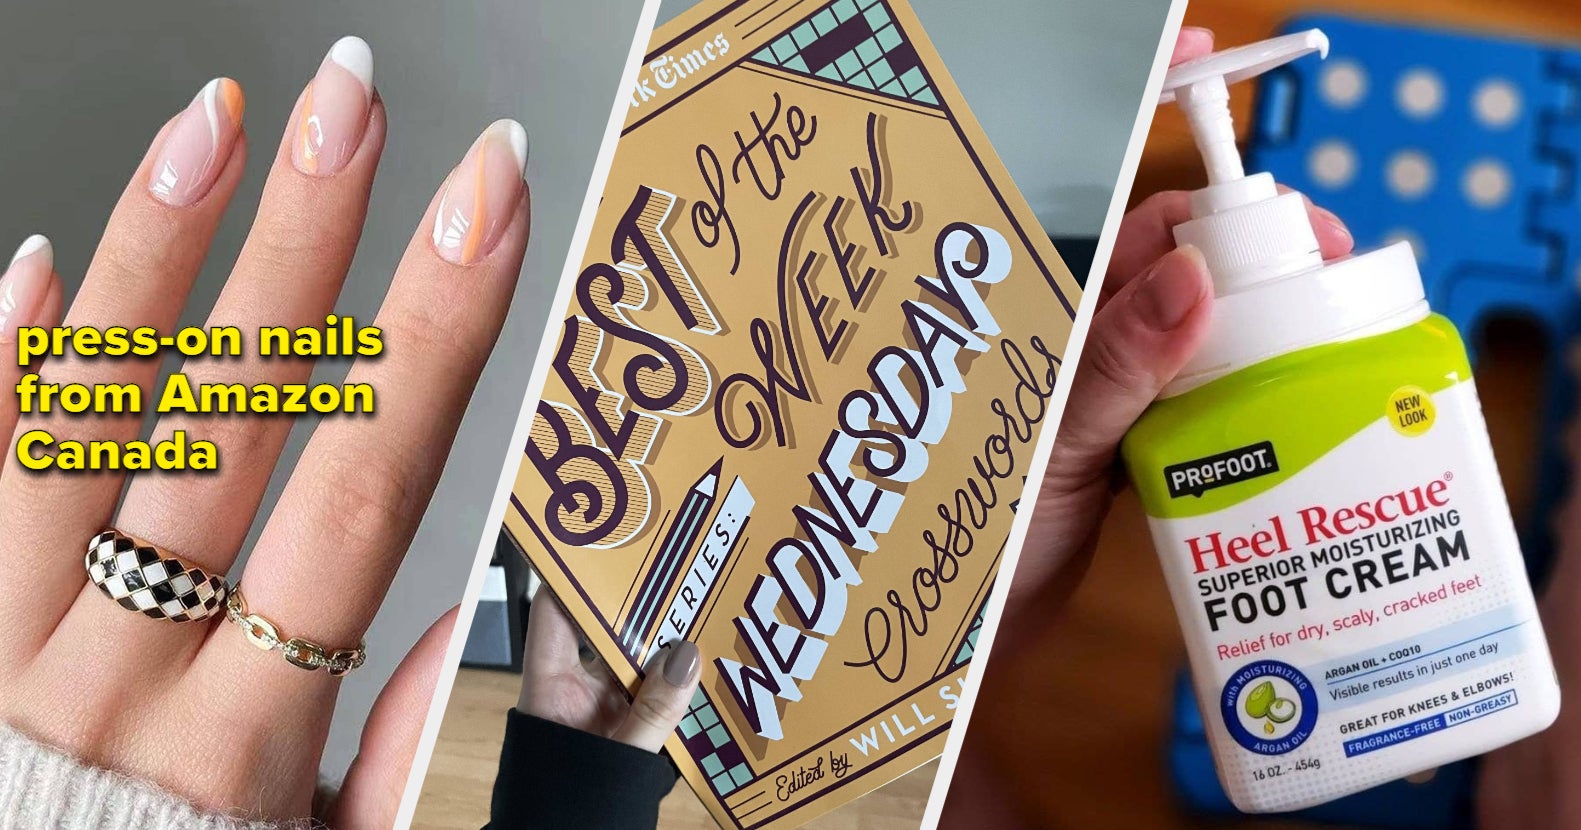 press-on nails
from Amazon
Canada
Times
BEST
of the
WEEK
SERIES:
WEDNESDAY
crosswords
Edited by WILL
NEW
LOOK
PROFOOT.
Heel Rescue®
SUPERIOR MOISTURIZING
FOOT CREAM
Relief for dry, scaly, cracked feet
with MOISTURIZING
ARGAN OIL
ARGAN OIL + COQ10
Visible results in just one day
GREAT FOR KNEES & ELBOWS!
FRAGRANCE-FREE NON-GREASY
16 OZ. - 454g